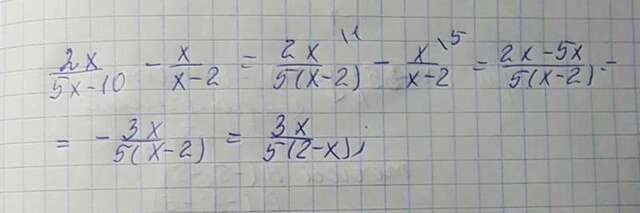 2x/(5x-10) - x/(x-2) = 2x\1/(5(x-2)) - x\5/(x-2) = (2x-5x)/(5(x-2)) =
= - 3x/(5(x-2)) = 3x/(5(2-x));